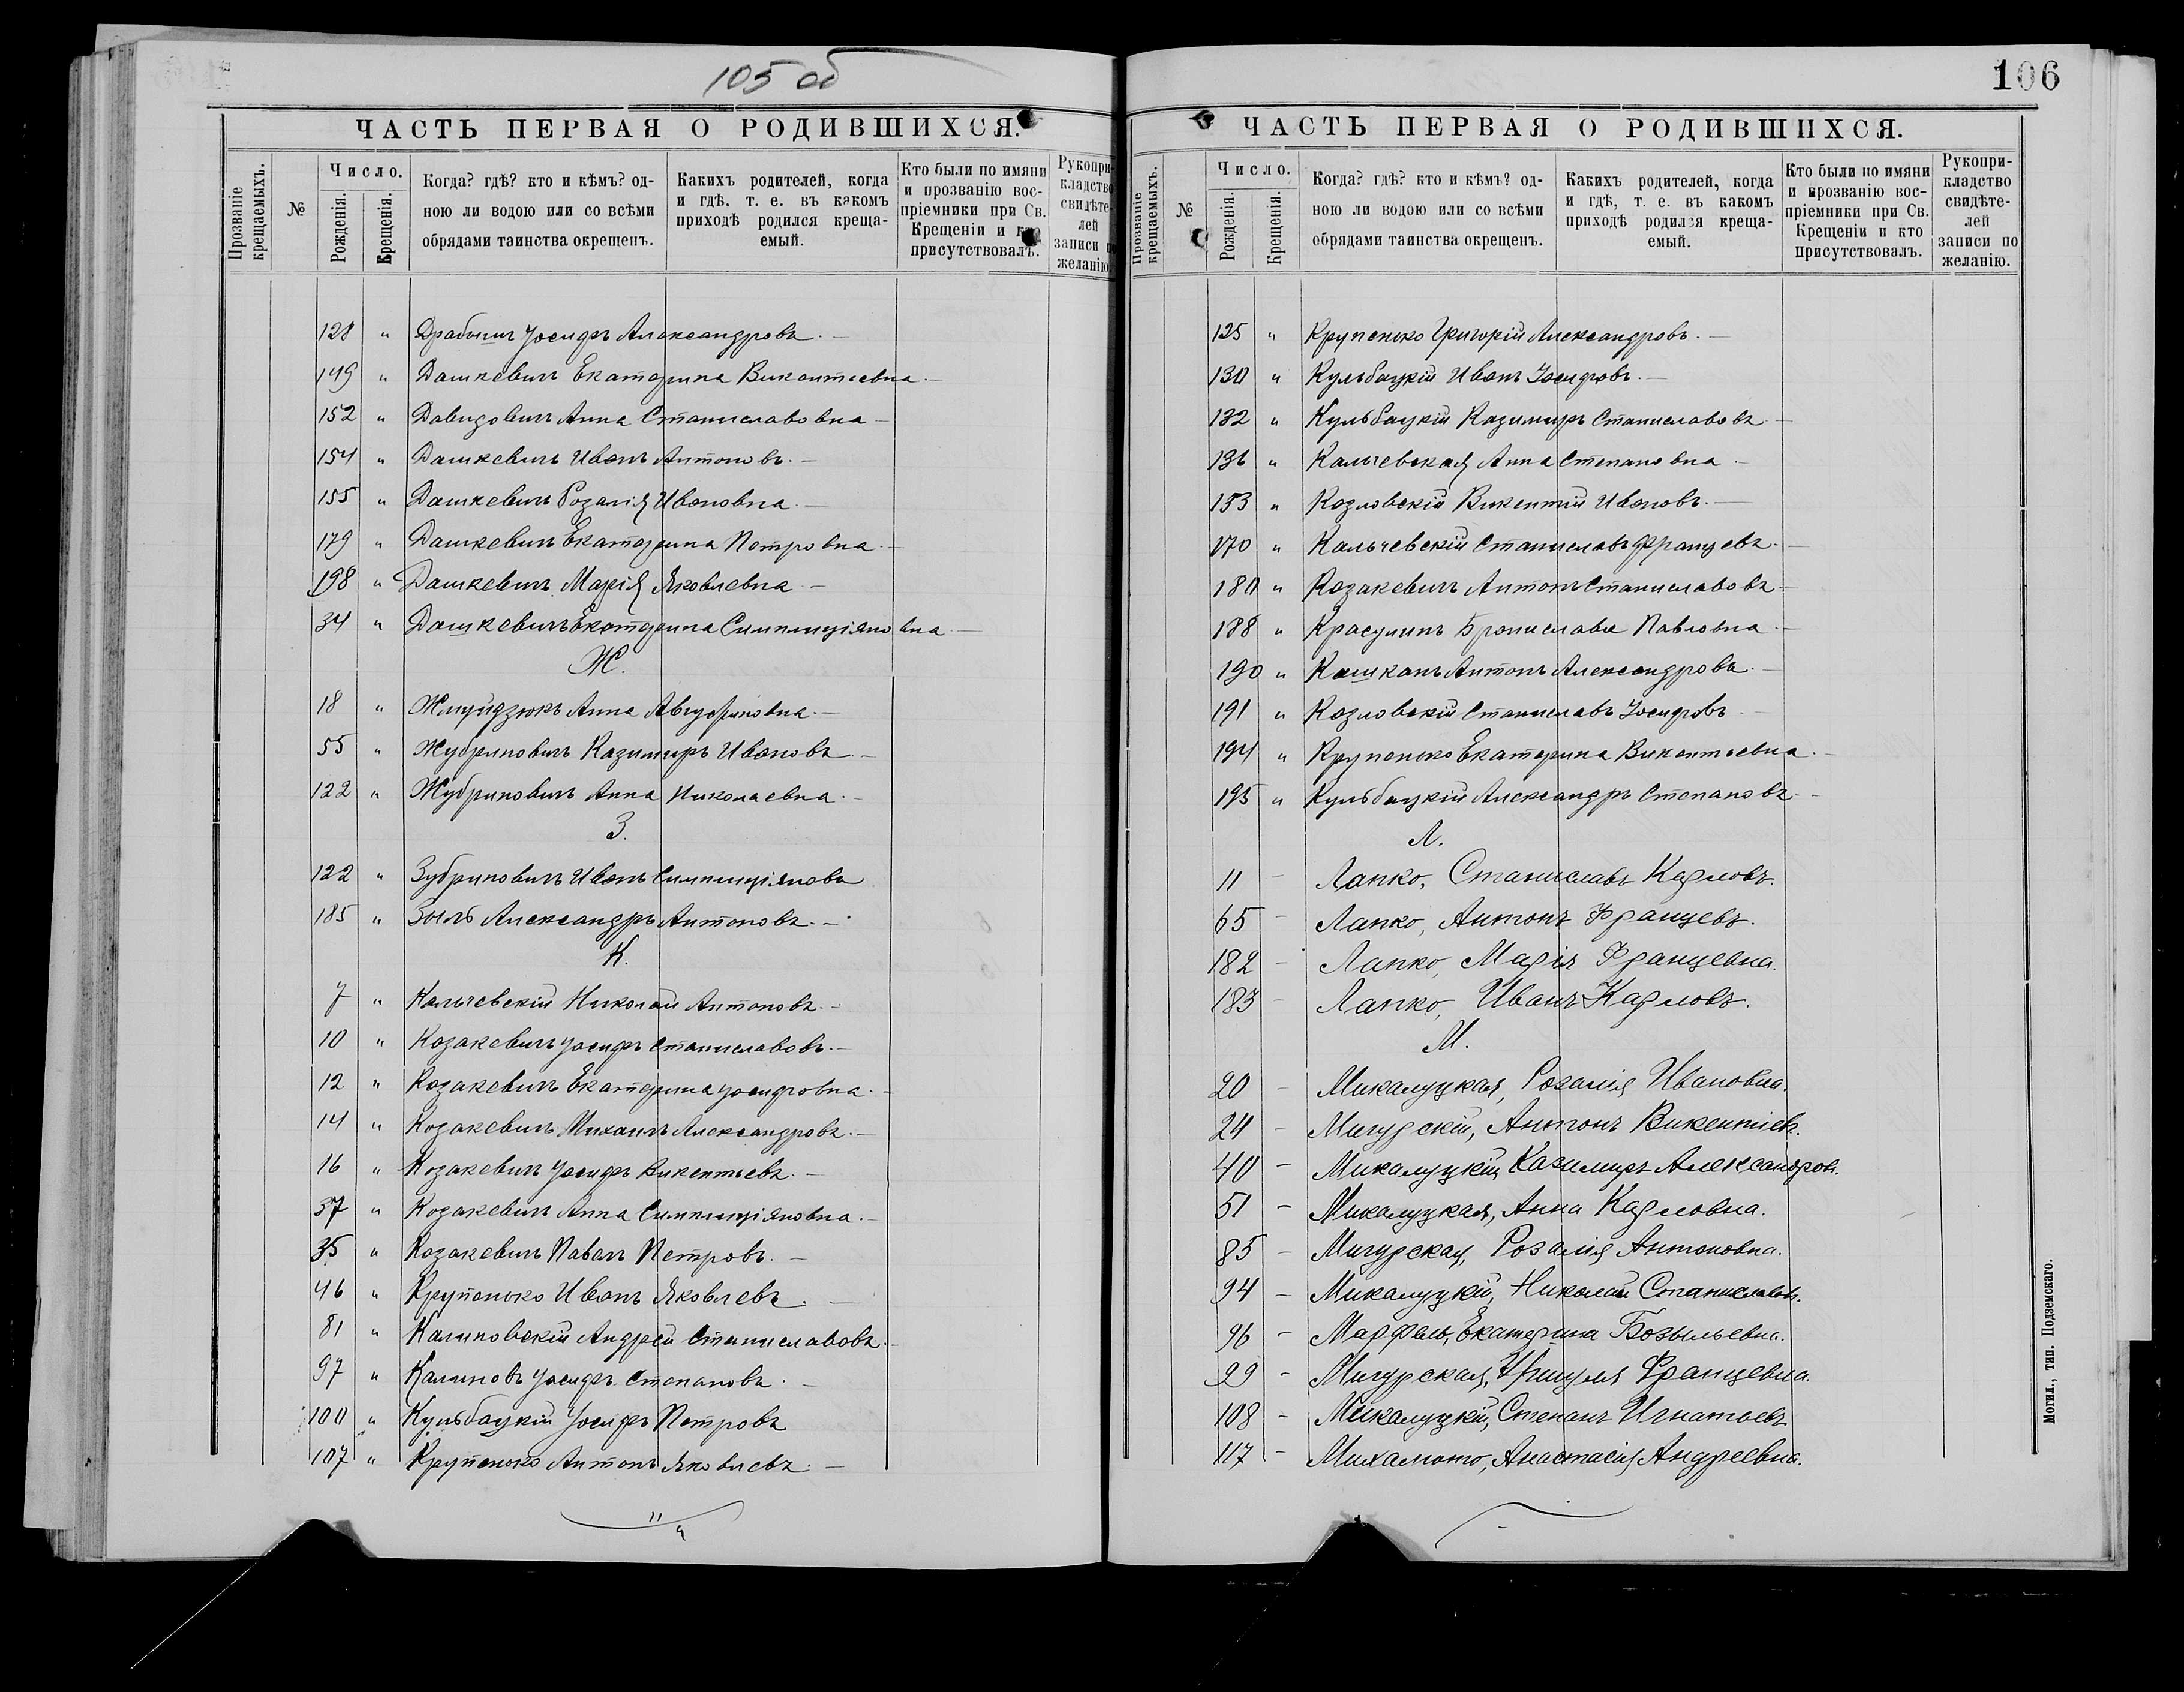 105 об
ЧАСТЬ ПЕРВАЯ О РОДИВШИХСЯ.
Прозваніе крещаемыхъ.
№
Число.
Рожденія.
Крещенія.
Когда? гдѣ? кто и кѣмъ? од-
ною ли водою или со всѣми
обрядами таинства окрещенъ.
Какихъ родителей, когда
и гдѣ, т. е. въ какомъ
приходѣ родился креща-
емый.
Кто были по имяни
и прозванію вос-
пріемники при Св.
Крещеніи и кто
присутствовалъ.
Рукопри-
кладство
свидѣте-
лей
записи по
желанію.
128 " Драбышъ Іосифъ Александровъ. —
149 " Дашкевичъ Екатерина Викентьевна. —
152 " Давидовичъ Анна Станиславовна —
154 " Дашкевичъ Иванъ Антоновъ. —
155 " Дашкевичъ Розалія Ивановна. —
179 " Дашкевичъ Екатерина Петровна. —
198 " Дашкевичъ Марія Яковлевна —
34 " Дашкевичъ Екатерина Симплиціяновна —
Ж.
18 " Жмуйдзюкъ Анна Августиновна. —
55 " Жубриновичъ Казимиръ Ивановъ —
122 " Жубриновичъ Анна Николаевна. —
З.
122 " Зубриновичъ Иванъ Симплиціяновъ
185 " Зыль Александръ Антоновъ. —
К.
7 " Кальчевскій Николай Антоновъ. —
10 " Козакевичъ Іосифъ Станиславовъ. —
12 " Козакевичъ Екатерина Іосифовна. —
14 " Козакевичъ Михаилъ Александровъ. —
16 " Козакевичъ Іосифъ Викентьевъ. —
37 " Козакевичъ Анна Симплиціяновна. —
35 " Козакевичъ Павелъ Петровъ. —
46 " Крупенько Иванъ Яковлевъ. —
81 " Калиновскій Андрей Станиславовъ. —
97 " Калиновъ Іосифъ Степановъ. —
100 " Кульбацкій Іосифъ Петровъ
107 " Крупенько Антонъ Яковлевъ. —
106
ЧАСТЬ ПЕРВАЯ О РОДИВШИХСЯ.
Прозваніе крещаемыхъ.
№
Число.
Рожденія.
Крещенія.
Когда? гдѣ? кто и кѣмъ? од-
ною ли водою или со всѣми
обрядами таинства окрещенъ.
Какихъ родителей, когда
и гдѣ, т. е. въ какомъ
приходѣ родился креща-
емый.
Кто были по имяни
и прозванію вос-
пріемники при Св.
Крещеніи и кто
присутствовалъ.
Рукопри-
кладство
свидѣте-
лей
записи по
желанію.
125 " Крупенько Григорій Александровъ. —
130 " Кульбацкій Иванъ Іосифовъ. —
132 " Кульбацкій Казимиръ Станиславовъ —
136 " Кальчевская Анна Степановна —
153 " Козловскій Викентій Ивановъ. —
170 " Кальчевскій Станиславъ Францевъ. —
180 " Козакевичъ Антонъ Станиславовъ —
188 " Красулинъ Брониславъ Павловна —
190 " Кашканъ Антонъ Александровъ. —
191 " Козловскій Станиславъ Іосифовъ —
194 " Крупенько Екатерина Викентьевна. —
195 " Кульбацкій Александръ Степановъ —
Л.
11 — Лапко, Станиславъ Карловъ.
65 — Лапко, Антонъ Францевъ.
182 — Лапко, Марія Францевна.
183 — Лапко, Иванъ Карловъ.
М.
20 — Микалуцкая, Розалія Ивановна.
24 — Мигурскій, Антонъ Викентіев.
40 — Микалуцкій, Казимиръ Александров.
51 — Микалуцкая, Анна Карловна.
85 — Мигурская, Розалія Антоновна.
94 — Микалуцкій, Николай Станиславов.
96 — Марфель, Екатерина
99 — Мигурская, Уршуля Францевна.
108 — Микалуцкій, Степанъ Игнатьевъ
117 — Анастасія Андреевна.
Могил., тип. Подземскаго.